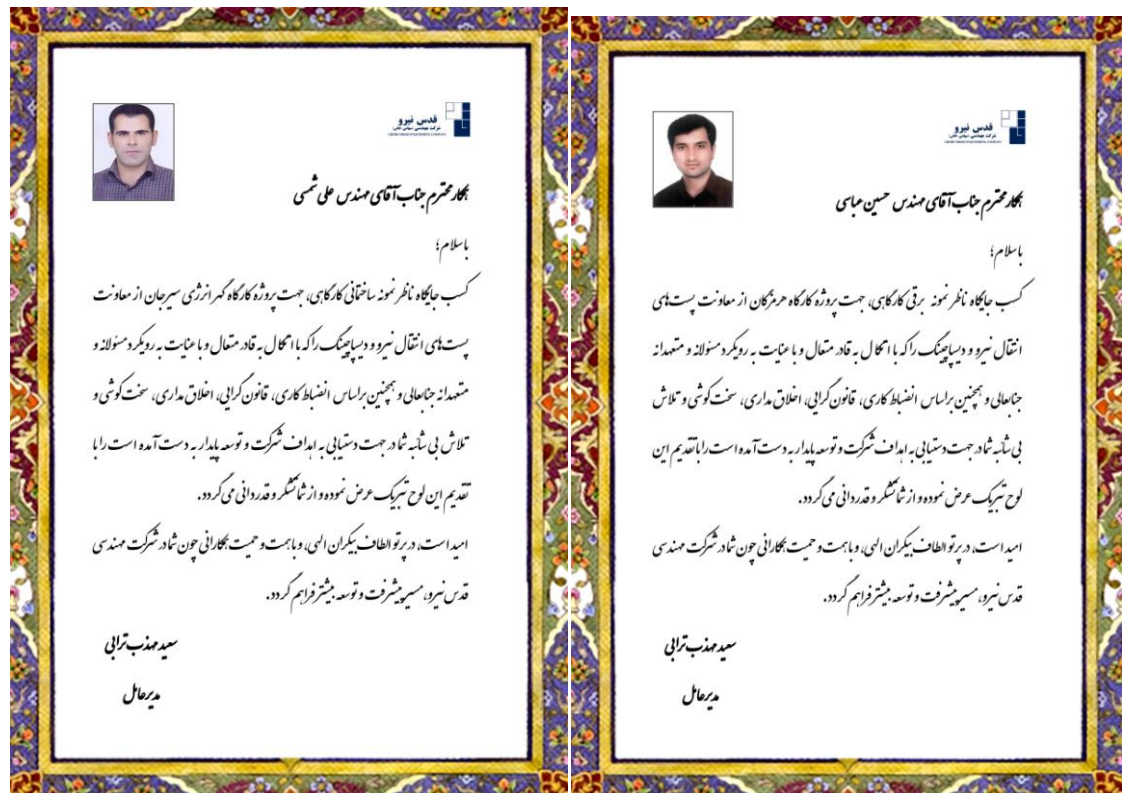 قدس نیرو
شرکت مهندسی (سهامی خاص)
همکار محترم جناب آقای مهندس علی شمسی
باسلام؛
کسب جایگاه ناظر نمونه ساختمانی کارگاهی، جهت پروژه کارگاه گهر انرژی سیرجان از معاونت
پست های انتقال نیرو و دیسپاچینگ را که با اتکال به قادر متعال و با عنایت به رویکرد مسئولانه و
متعهدانه جنابعالی و همچنین براساس انضباط کاری، قانون گرایی، اخلاق مداری، سخت کوشی و
تلاش بی شائبه شما در جهت دستیابی به اهداف شرکت و توسعه پایدار به دست آمده است را با
تقدیم این لوح تبریک عرض نموده و از شما تشکر و قدردانی می گردد.
امید است، در پرتو الطاف بیکران الهی، و با همت و حمیت همکارانی چون شما در شرکت مهندسی
قدس نیرو، مسیر پیشرفت و توسعه بیشتر فراهم گردد.
سعید مهذب ترابی
مدیرعامل
قدس نیرو
شرکت مهندسی (سهامی خاص)
همکار محترم جناب آقای مهندس حسین عباسی
باسلام؛
کسب جایگاه ناظر نمونه برقی کارگاهی، جهت پروژه کارگاه هرمزگان از معاونت پست های
انتقال نیرو و دیسپاچینگ را که با اتکال به قادر متعال و با عنایت به رویکرد مسئولانه و متعهدانه
جنابعالی و همچنین براساس انضباط کاری، قانون گرایی، اخلاق مداری، سخت کوشی و تلاش
بی شائبه شما در جهت دستیابی به اهداف شرکت و توسعه پایدار به دست آمده است را با تقدیم این
لوح تبریک عرض نموده و از شما تشکر و قدردانی می گردد.
امید است، در پرتو الطاف بیکران الهی، و با همت و حمیت همکارانی چون شما در شرکت مهندسی
قدس نیرو، مسیر پیشرفت و توسعه بیشتر فراهم گردد.
سعید مهذب ترابی
مدیرعامل